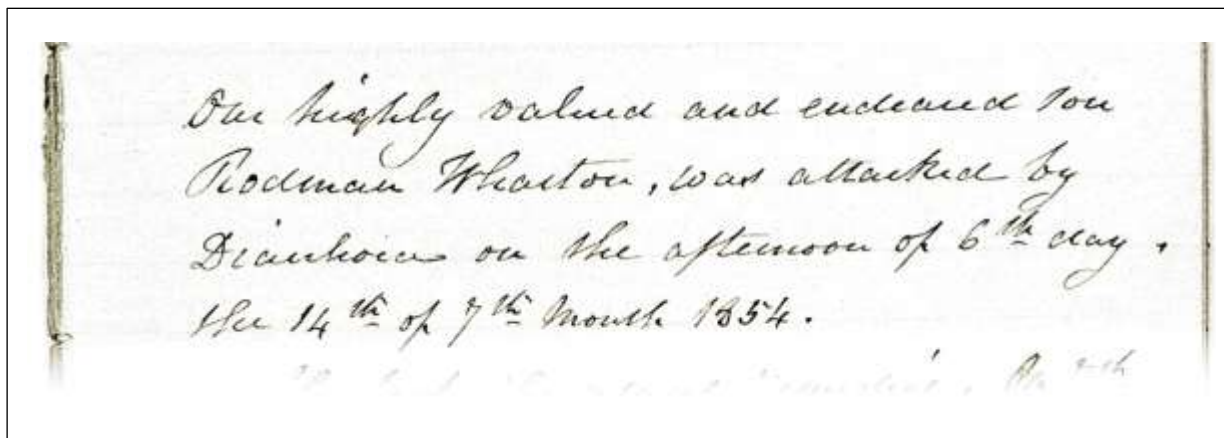 Our highly valued and endeared son
Rodman Wharton, was attacked by
Diarrhoea on the afternoon of 6th day,
the 14th of 7th Month 1854.
On 7th